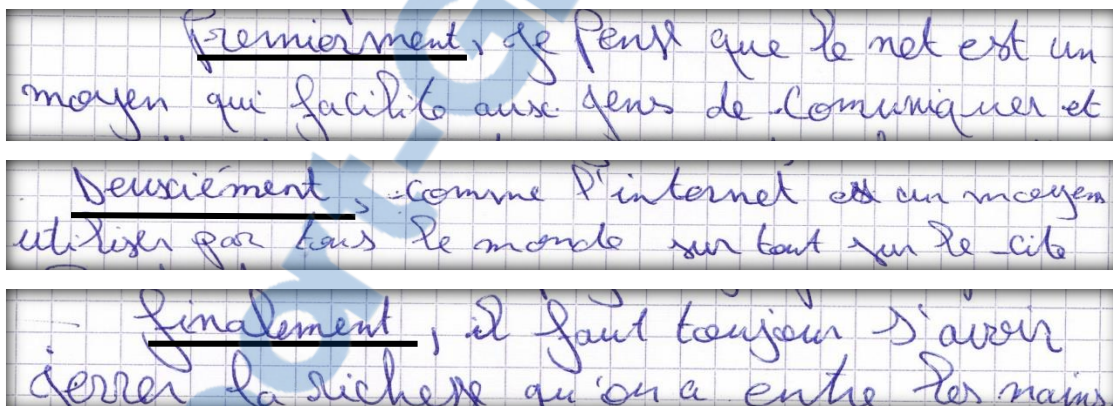 Premiérment, je Pense que le net est un
moyen qui facilite aux gens de Comuniquer et
Deuxiément, comme l'internet est un moyen
utiliser par tous le monde sur tout sur le cite
finalement, il faut toujour s'avoir
gerrer la richesse qu'on a entre les mains